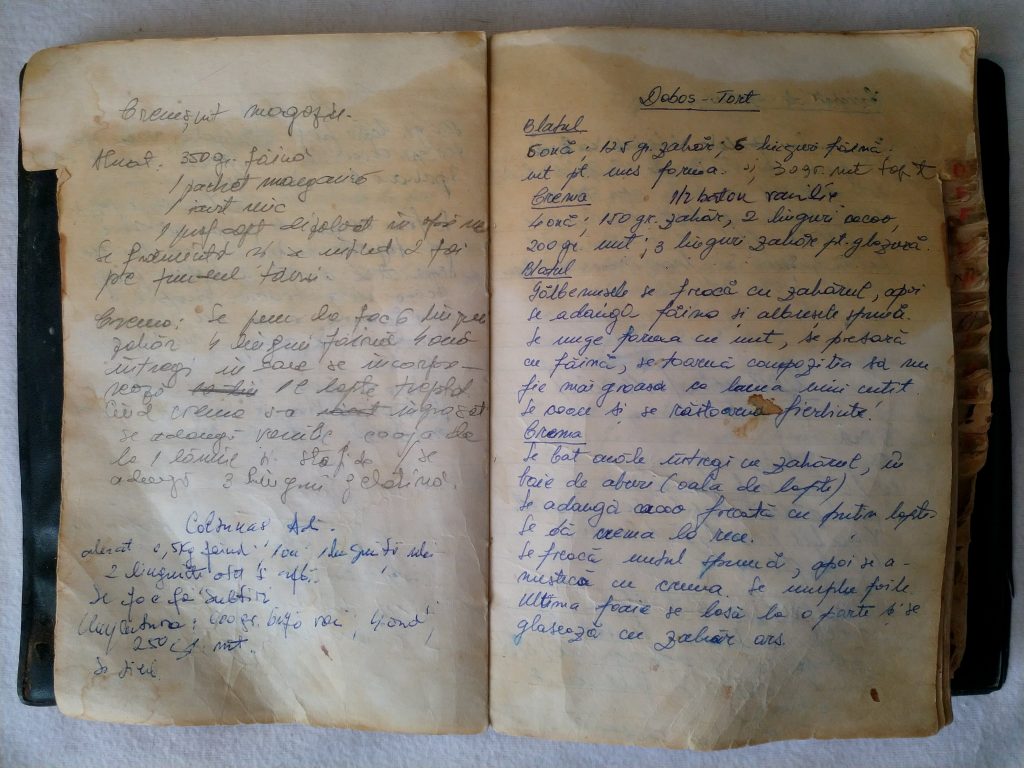 Cremșnit magazin.
Aluat: 350 gr. făină
1 pachet margarină
1 iaurt mic
1 praf copt dizolvat in
Se frământă și se intind 2 foi
pe fundul tăvii.
Crema: Se pun la foc 6 linguri
zahăr 4 linguri făină 4 ouă
intregi in care se incorpo-
rează 1 l lapte
Cind crema s-a ingroșat
se adaugă vanilie coaja de
la 1 lămîie și se
adaugă 3 linguri gelatină.
Adi.
aluat 0,5 kg făină 1 ou 1 linguriță ulei
2 lingurițe oțet și apă.
Se fac foi subțiri
Umplutura: 400 gr. 4 ouă,
250 unt.
Dobos - Tort
Blatul
6 ouă; 125 gr. zahăr; 6 linguri făină.
unt pt. uns forma. 30 gr. unt topit
Crema 1/2 baton vanilie
4 ouă; 150 gr. zahăr, 2 linguri cacao,
200 gr. unt; 3 linguri zahăr pt. glazură.
Blatul
Gălbenușele se freacă cu zahărul, apoi
se adaugă făina și albușele spumă.
Se unge forma cu unt, se presară
cu făină, se toarnă compoziția să nu
fie mai groasă ca lama unui cuțit.
Se coace și se răstoarnă fierbinte!
Crema
Se bat ouăle intregi cu zahărul, in
baie de aburi (oala de lapte)
Se adaugă cacao frecată cu puțin lapte.
Se dă crema la rece.
Se freacă untul spumă, apoi se a-
mestecă cu crema. Se umple foile.
Ultima foaie se lasă la o parte și se
glasează cu zahăr ars.